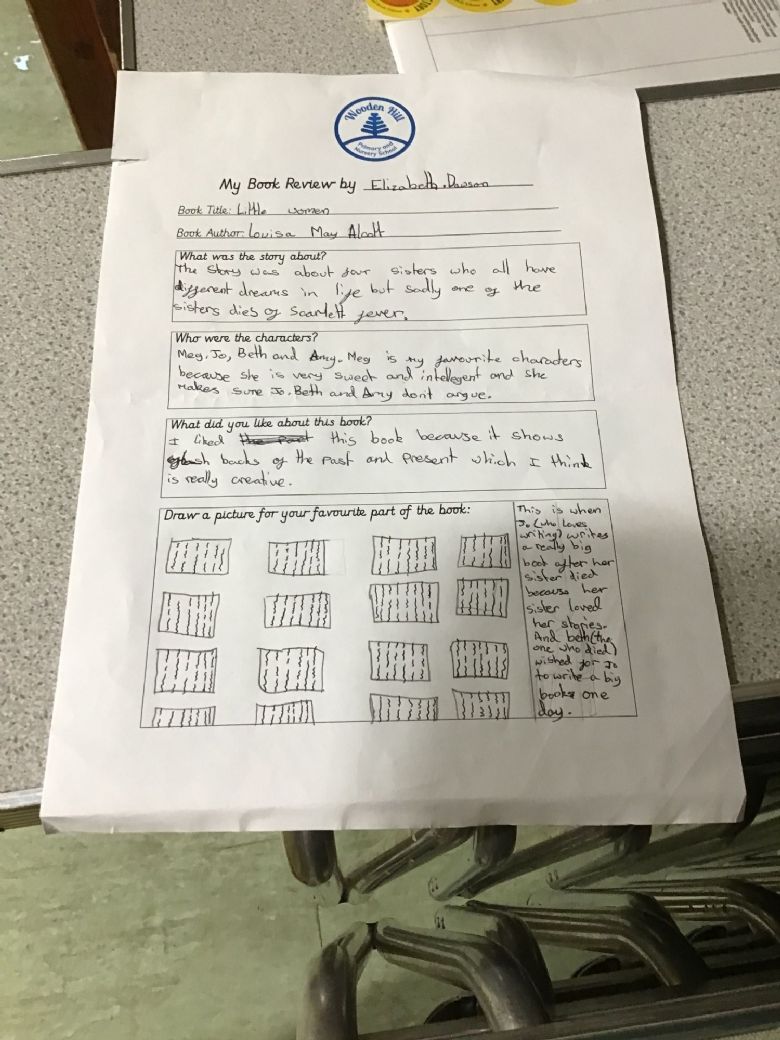 Wooden Hill
Primary and
Nursery School
My Book Review by Elizabeth.Dawson
Book Title: Little women
Book Author: Louisa May Alcott
What was the story about?
The story was about four sisters who all have
different dreams in life but sadly one of the
sisters dies of Scarlett fever.
Who were the characters?
Meg, Jo, Beth and Amy. Meg is my favourite characters
because she is very sweet and intellegent and she
makes sure Jo, Beth and Amy don't argue.
What did you like about this book?
I liked the part this book because it shows
backs of the past and present which I think
is really creative.
Draw a picture for your favourite part of the book:
This is when
Jo (who loves
writing) writes
a really big
book after her
sister died
because her
sister loved
her stories.
And beth(the
one who died)
wished for Jo
to write a big
book one
day.